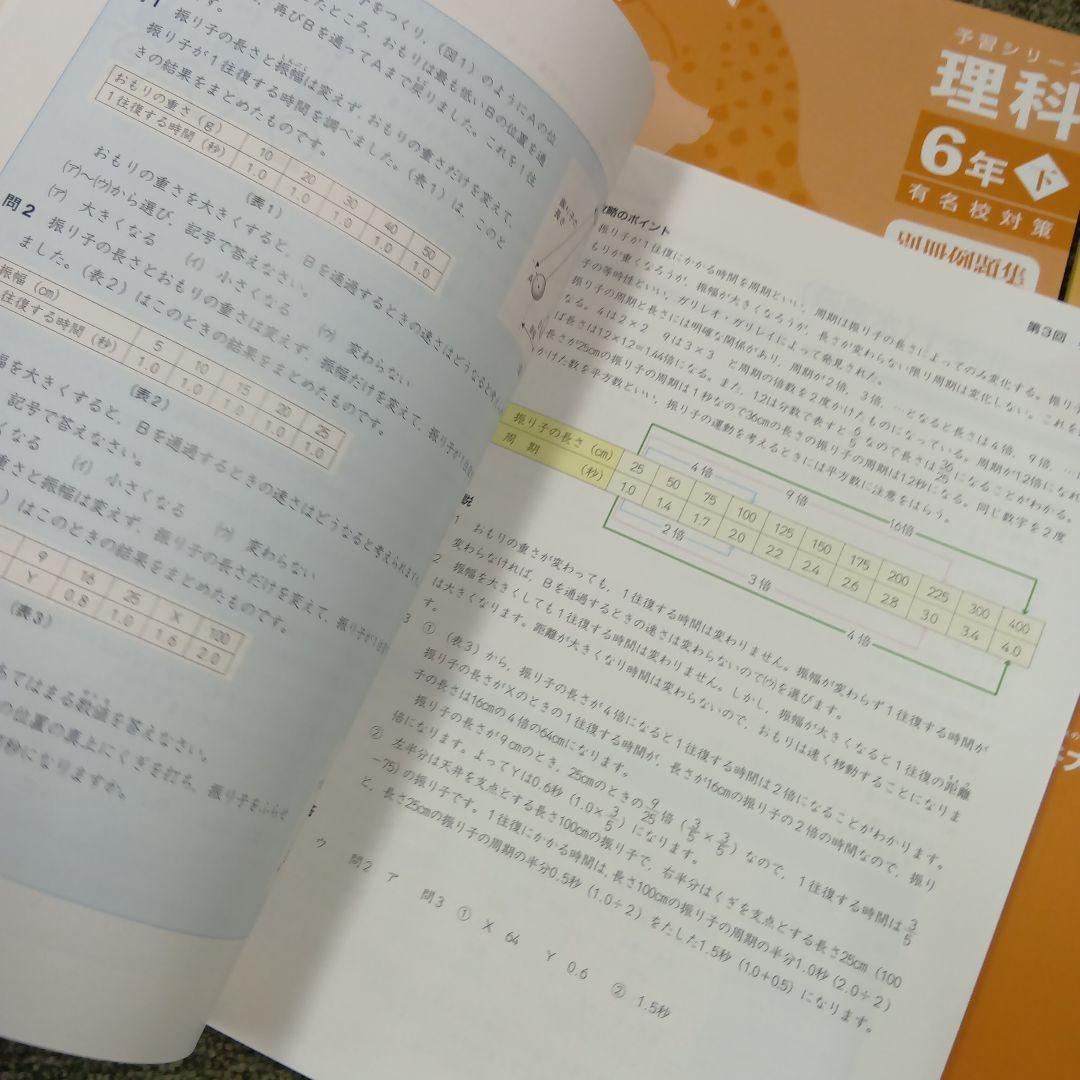 子をつくり，(図1)のようにAの位
たところ，おもりは最も低いBの位置を通
再びBを通ってAまで戻りました。これを1往
振り子の長さと振幅は変えず，おもりの重さだけを変えて，
振り子が1往復する時間を調べました。(表1)は，このと
きの結果をまとめたものです。
おもりの重さ(g) 10 20 30 40 50
1往復する時間(秒) 1.0 1.0 1.0 1.0 1.0
(表1)
おもりの重さを大きくすると，Bを通過するときの速さはどうなると考え
(ア)〜(ウ)から選び，記号で答えなさい。
(ア) 大きくなる (イ) 小さくなる (ウ) 変わらない
問2 振り子の長さとおもりの重さは変えず，振幅だけを変えて，振り子が1往復
ました。(表2)はこのときの結果をまとめたものです。
振幅(cm) 5 10 15 20 25
往復する時間(秒) 1.0 1.0 1.0 1.0 1.0
(表2)
幅を大きくすると，Bを通過するときの速さはどうなると考えられます
記号で答えなさい。
くなる (イ) 小さくなる (ウ) 変わらない
重さと振幅は変えず，振り子の長さだけを変えて，振り子が1往復
)はこのときの結果をまとめたものです。
9 16 25 X 100
Y 0.8 1.0 1.6 2.0
(表3)
あてはまる数値を答えなさい。
の位置の真上にくぎを打ち，振り子をふらせ
何秒になりますか。
予習シリーズ
理科
6年 下
有名校対策
別冊例題集
第3回
攻略のポイント
振り子が1往復にかかる時間を周期といい，周期は振り子の長さによってのみ変化する。振り子
もりが重くなろうが，振幅が大きくなろうが，長さが変わらない限り周期は変化しない。これを
子の等時性といい，ガリレオ・ガリレイによって発見された。
振り子の周期と長さには明確な関係があり，周期が2倍，3倍，…となると長さは4倍，9倍，…
なる。4は2×2 9は3×3 と周期の倍数を2度かけたものになっている。周期が1.2倍になれ
ば長さは1.2×1.2=1.44倍になる。また，1.2は分数で表すと6/5なので長さは36/25になることがわかる。
長さが25cmの振り子の周期は1秒なので36cmの長さの振り子の周期は1.2秒になる。同じ数字を2度
かけた数を平方数といい，振り子の運動を考えるときには平方数に注意をはらう。
4倍 9倍 16倍
振り子の長さ(cm) 25 50 75 100 125 150 175 200 225 300 400
周期 (秒) 1.0 1.4 1.7 2.0 2.2 2.4 2.6 2.8 3.0 3.4 4.0
2倍 3倍 4倍
説
1 おもりの重さが変わっても，1往復する時間は変わりません。振幅が変わらず1往復する時間が
変わらなければ，Bを通過するときの速さは変わらないので(ウ)を選びます。
2 振幅を大きくしても1往復する時間は変わりません。しかし，振幅が大きくなると1往復の距離
は大きくなります。距離が大きくなり時間は変わらないので，おもりは速く移動することになりま
す。
3 ① (表3)から，振り子の長さが4倍になると1往復する時間は2倍になることがわかります。
振り子の長さがXのときの1往復する時間が，長さが16cmの振り子の2倍の時間なので，振り
子の長さは16cmの4倍の64cmになります。
振り子の長さが9cmのとき，25cmのときの9/25倍(3/5×3/5)なので，1往復する時間は3/5
倍になります。よってYは0.6秒(1.0×3/5)になります。
② 左半分は天井を支点とする長さ100cmの振り子で，右半分はくぎを支点とする長さ25cm(100
−75)の振り子です。1往復にかかる時間は，長さ100cmの振り子の周期の半分1.0秒(2.0÷2)
と，長さ25cmの振り子の周期の半分0.5秒(1.0÷2)をたした1.5秒(1.0+0.5)になります。
ウ 問2 ア 問3 ① X 64 Y 0.6 ② 1.5秒